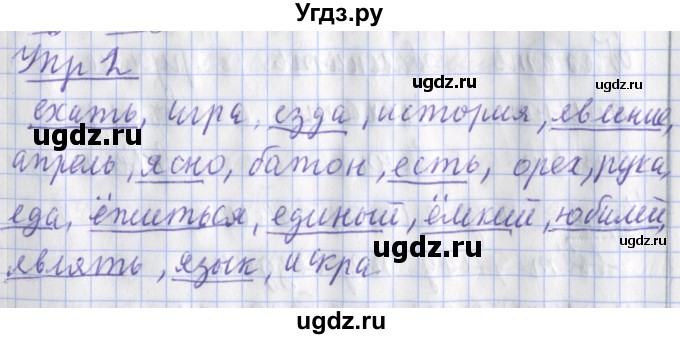 Угдз.ру
Упр 2
ugdz.ru
ехать, игра, езда, история, явление,
ugdz.ru ugdz.ru
апрель, ясно, батон, есть, орех, рука,
ugdz.ru
еда, ёжиться, единый, ёмкий, юбилей,
ugdz.ru ugdz.ru
являть, язык, искра
ugdz.ru